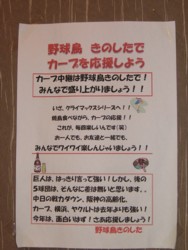 野球鳥 きのしたで
カープを応援しよう
カープ中継は野球鳥きのしたで!!
みんなで盛り上がりましょう!!
いざ、クライマックスシリーズへ!!
焼鳥食べながら、カープの応援!!
これが、毎回楽しいんです(笑)
お一人でも、お友達と一緒でも、
みんなでワイワイ楽しんじゃいましょう!!
巨人は、はっきり言って強い!しかし、後の
5球団は、そんなに差は無いと思います。
中日の戦力ダウン、阪神の高齢化、
カープ、横浜、ヤクルトは去年よりも強い!
今年は、面白います!さあ応援しましょう!
野球鳥きのした